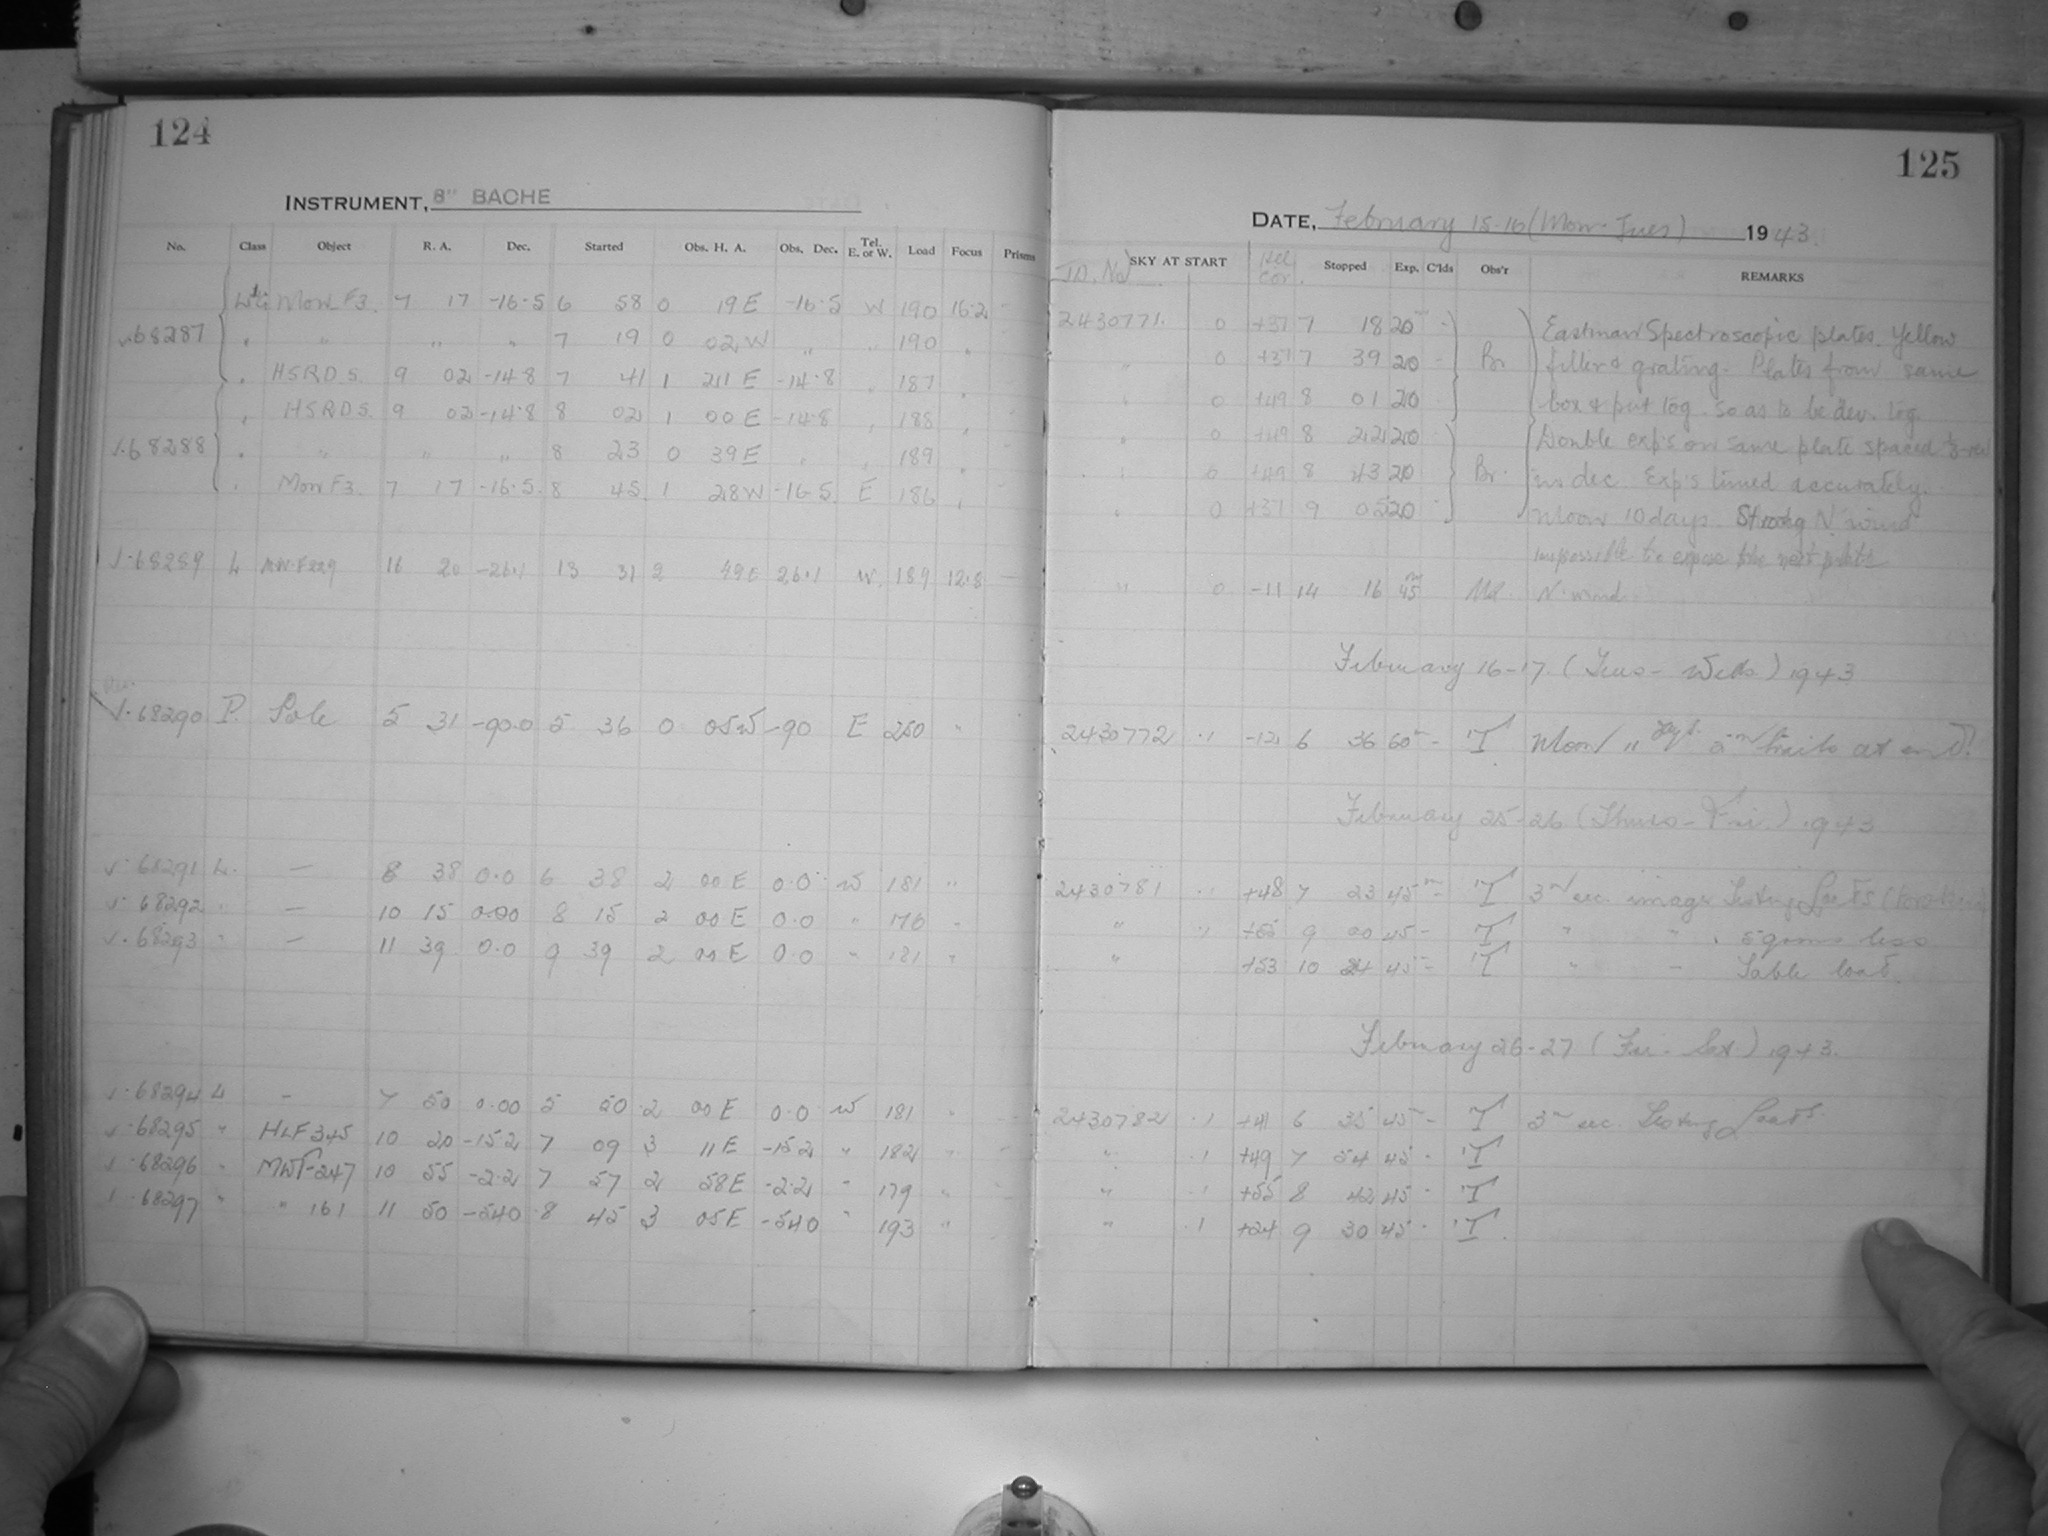 124
INSTRUMENT, 8" BACHE
No. Class Object R. A. Dec. Started Obs. H. A. Obs. Dec. Tel. E. or W. Load Focus Prisms
Mon F3. 7 17 -16.5 6 58 0 19 E -16.5 W 190 16.2
68287 " " " 7 19 0 02 W " " 190 "
HSRDS 9 02 -14.8 7 41 1 21 E -14.8 " 187 "
HSRDS. 9 02 -14.8 8 02 1 00 E -14.8 " 188 "
68288 " " " 8 23 0 39 E " " 189 "
Mon F3. 7 17 -16.5. 8 45 1 28 W -16.5 E 186 "
68289 L MWF229 16 20 -26.1 13 31 2 49 E 26.1 W. 189 12.8 —
68290 P. Pole 5 31 -90.0 5 36 0 05 W -90 E 250 "
68291 L. — 8 38 0.0 6 38 2 00 E 0.0 W 181 "
68292 " — 10 15 0.00 8 15 2 00 E 0.0 " 176 "
68293 " — 11 39 0.0 9 39 2 00 E 0.0 " 181 "
68294 L - 7 50 0.00 5 50 2 00 E 0.0 W 181 "
68295 " HLF 345 10 20 -15.2 7 09 3 11 E -15.2 " 182 "
68296 " MWF-247 10 55 -2.2 7 57 2 58 E -2.2 " 179 "
68297 " " 161 11 50 -54.0 8 45 3 05 E -54.0 " 193 "
125
DATE, February 15-16 (Mon-Tues) 1943.
J.D. No SKY AT START Hel Cor. Stopped Exp. C'lds Obs'r REMARKS
2430771. 0 +37 7 18 20 m - Eastman Spectroscopic plates. Yellow
" 0 +37 7 39 20 - Br. filter & grating. Plates from same
" 0 +49 8 01 20 box & put tog. so as to be dev. tog.
" 0 +49 8 22 20 - Double exp's on same plate spaced
" 0 +49 8 43 20 Br. in dec. Exp's timed accurately.
" 0 +37 9 05 20 Moon 10 days. Strong N wind
impossible to expose the next plate
" 0 -11 14 16 45 m N. wind
February 16-17. (Tues - Weds.) 1943
2430772 .1 -12 6 36 60 m - T Moon 11 days. 2 m trails at end.
February 25-26 (Thurs - Fri.) 1943
2430781 .1 +48 7 23 45 m - T 3 m ec. images Testing Loads
" .1 9 00 45 - T " " . 5 grams less
" +53 10 24 45 - T " - Table load.
February 26-27 (Fri. - Sat.) 1943.
2430782 .1 +41 6 35 45 m - T 3 m ec. Testing Loads
" .1 +49 7 54 45 - T
" .1 +55 8 42 45 - T
" .1 +24 9 30 45 - T.